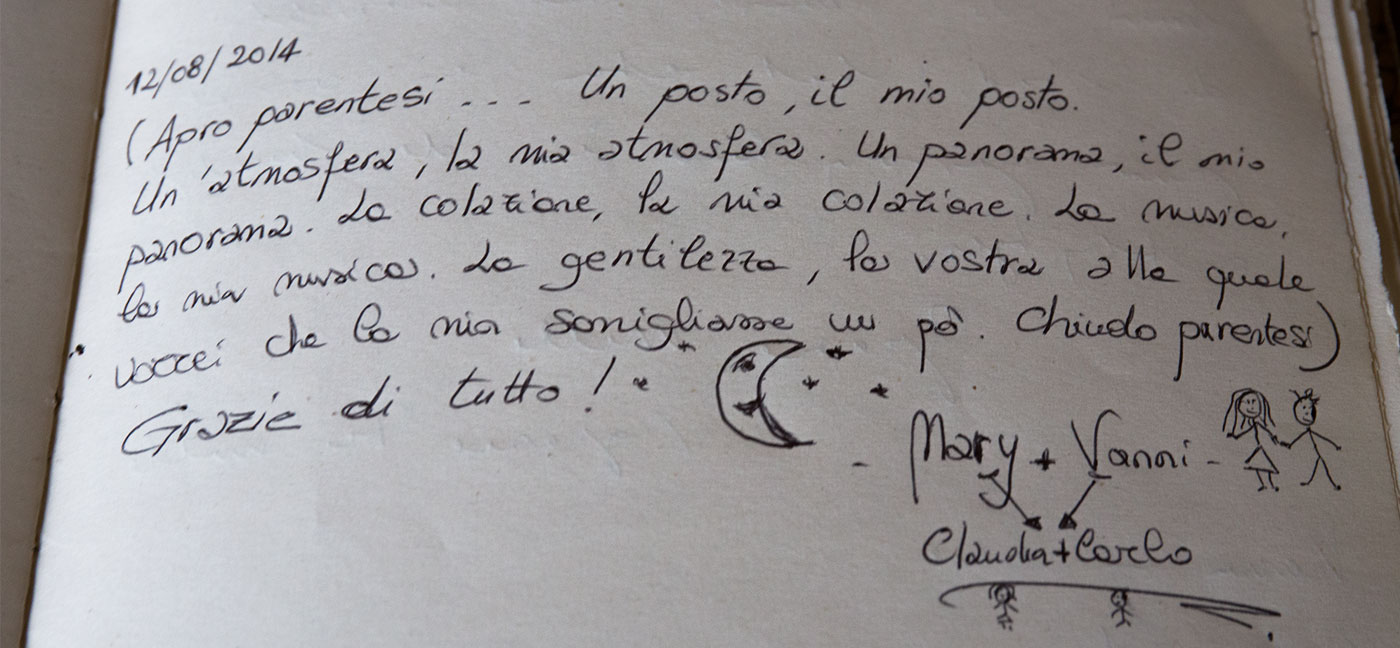 12/08/2014
(Apro parentesi... Un posto, il mio posto.
Un'atmosfera, la mia atmosfera. Un panorama, il mio
panorama. La colazione, la mia colazione. La musica,
la mia musica. La gentilezza, la vostra alla quale
vorrei che la mia somigliasse un pò. Chiudo parentesi)
Grazie di tutto!
- Mary + Vanni -
Claudia + Carlo